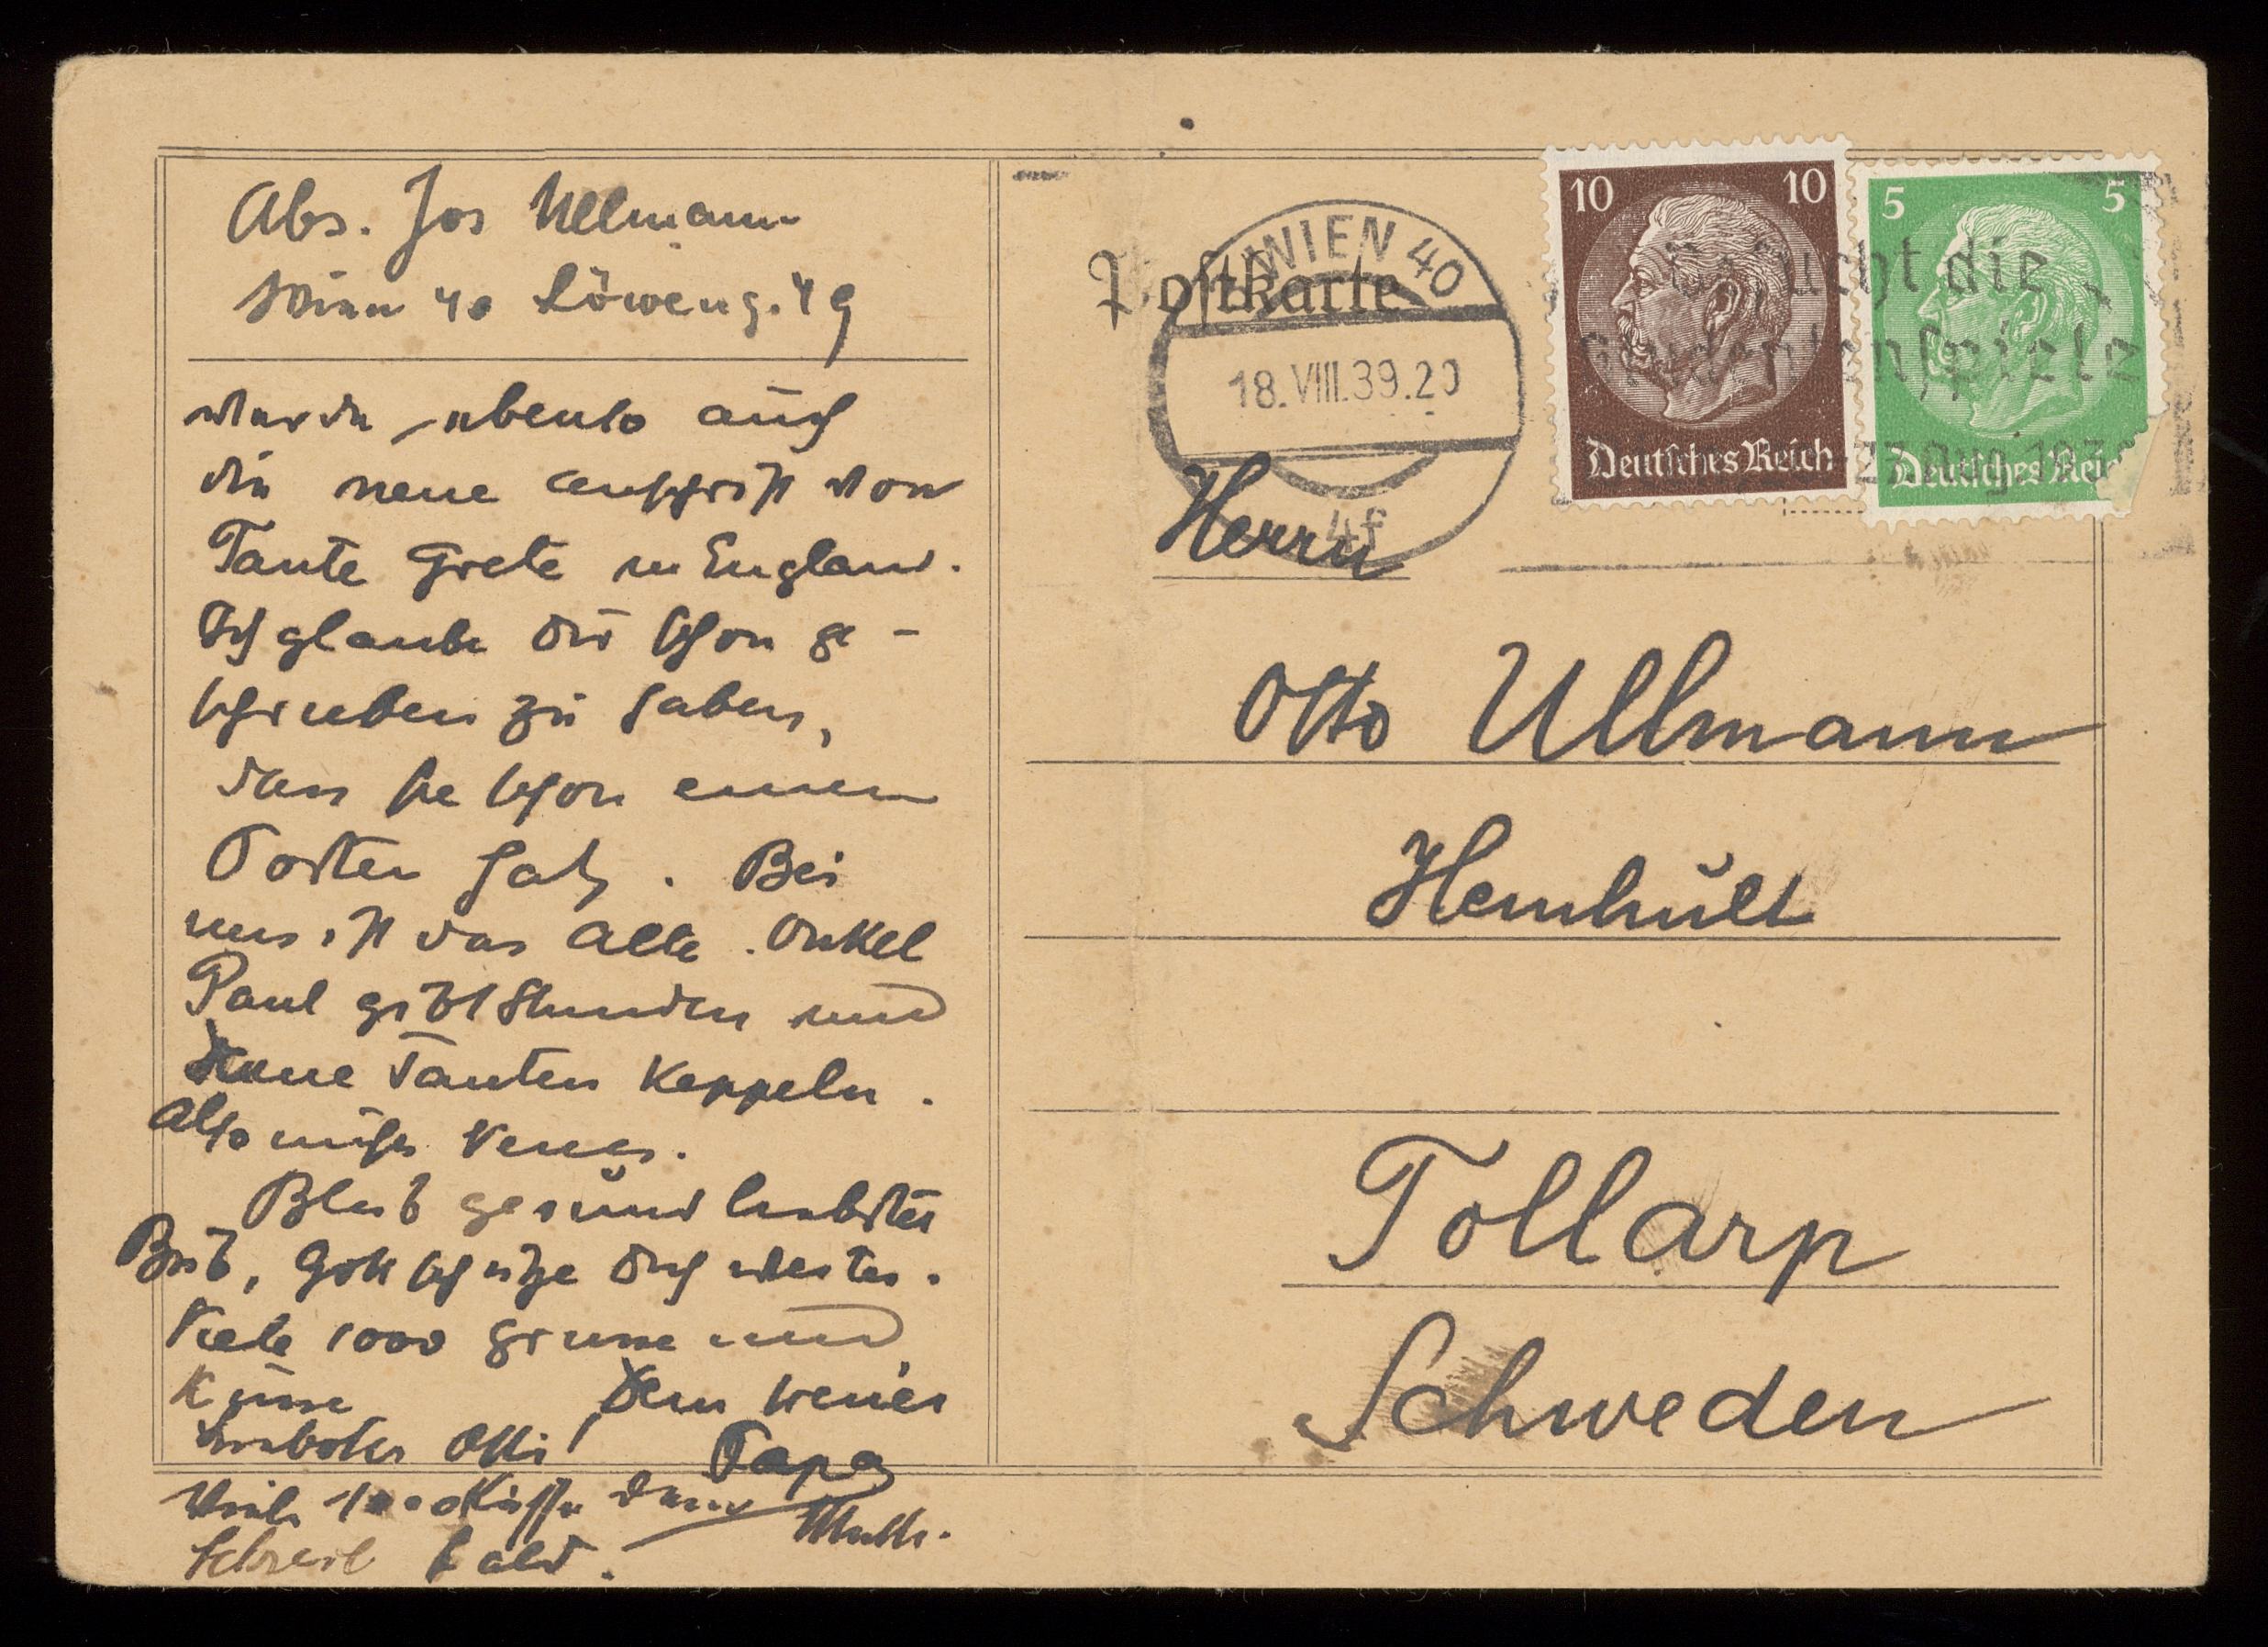 Abs. Jos Ullmann
Wien 40 Löweng. 49
werde ebenso auch
die neue Anschrift von
Tante Grete in England.
Ich glaube dir schon ge-
schrieben zu haben,
dass sie schon einen
Posten hat. Bei
uns ist das alte. Onkel
Paul gibt Stunden und
Deine Tanten keppeln.
Also nichts Neues.
Bleib gesund liebster
Bub, Gott schütze dich weiter.
Viele 1000 Grüsse und
Küsse Dein treuer
Papa
Liebster Otti!
Viele 1000 Küsse deine Mutti.
Schreib bald.
Postkarte
WIEN 40
18.VIII.39.20
4f
10 10
Deutsches Reich
5 5
Deutsches Reich
die
Studentenspiele
Aug. 193
Herrn
Otto Ullmann
Hemhult
Tollarp
Schweden